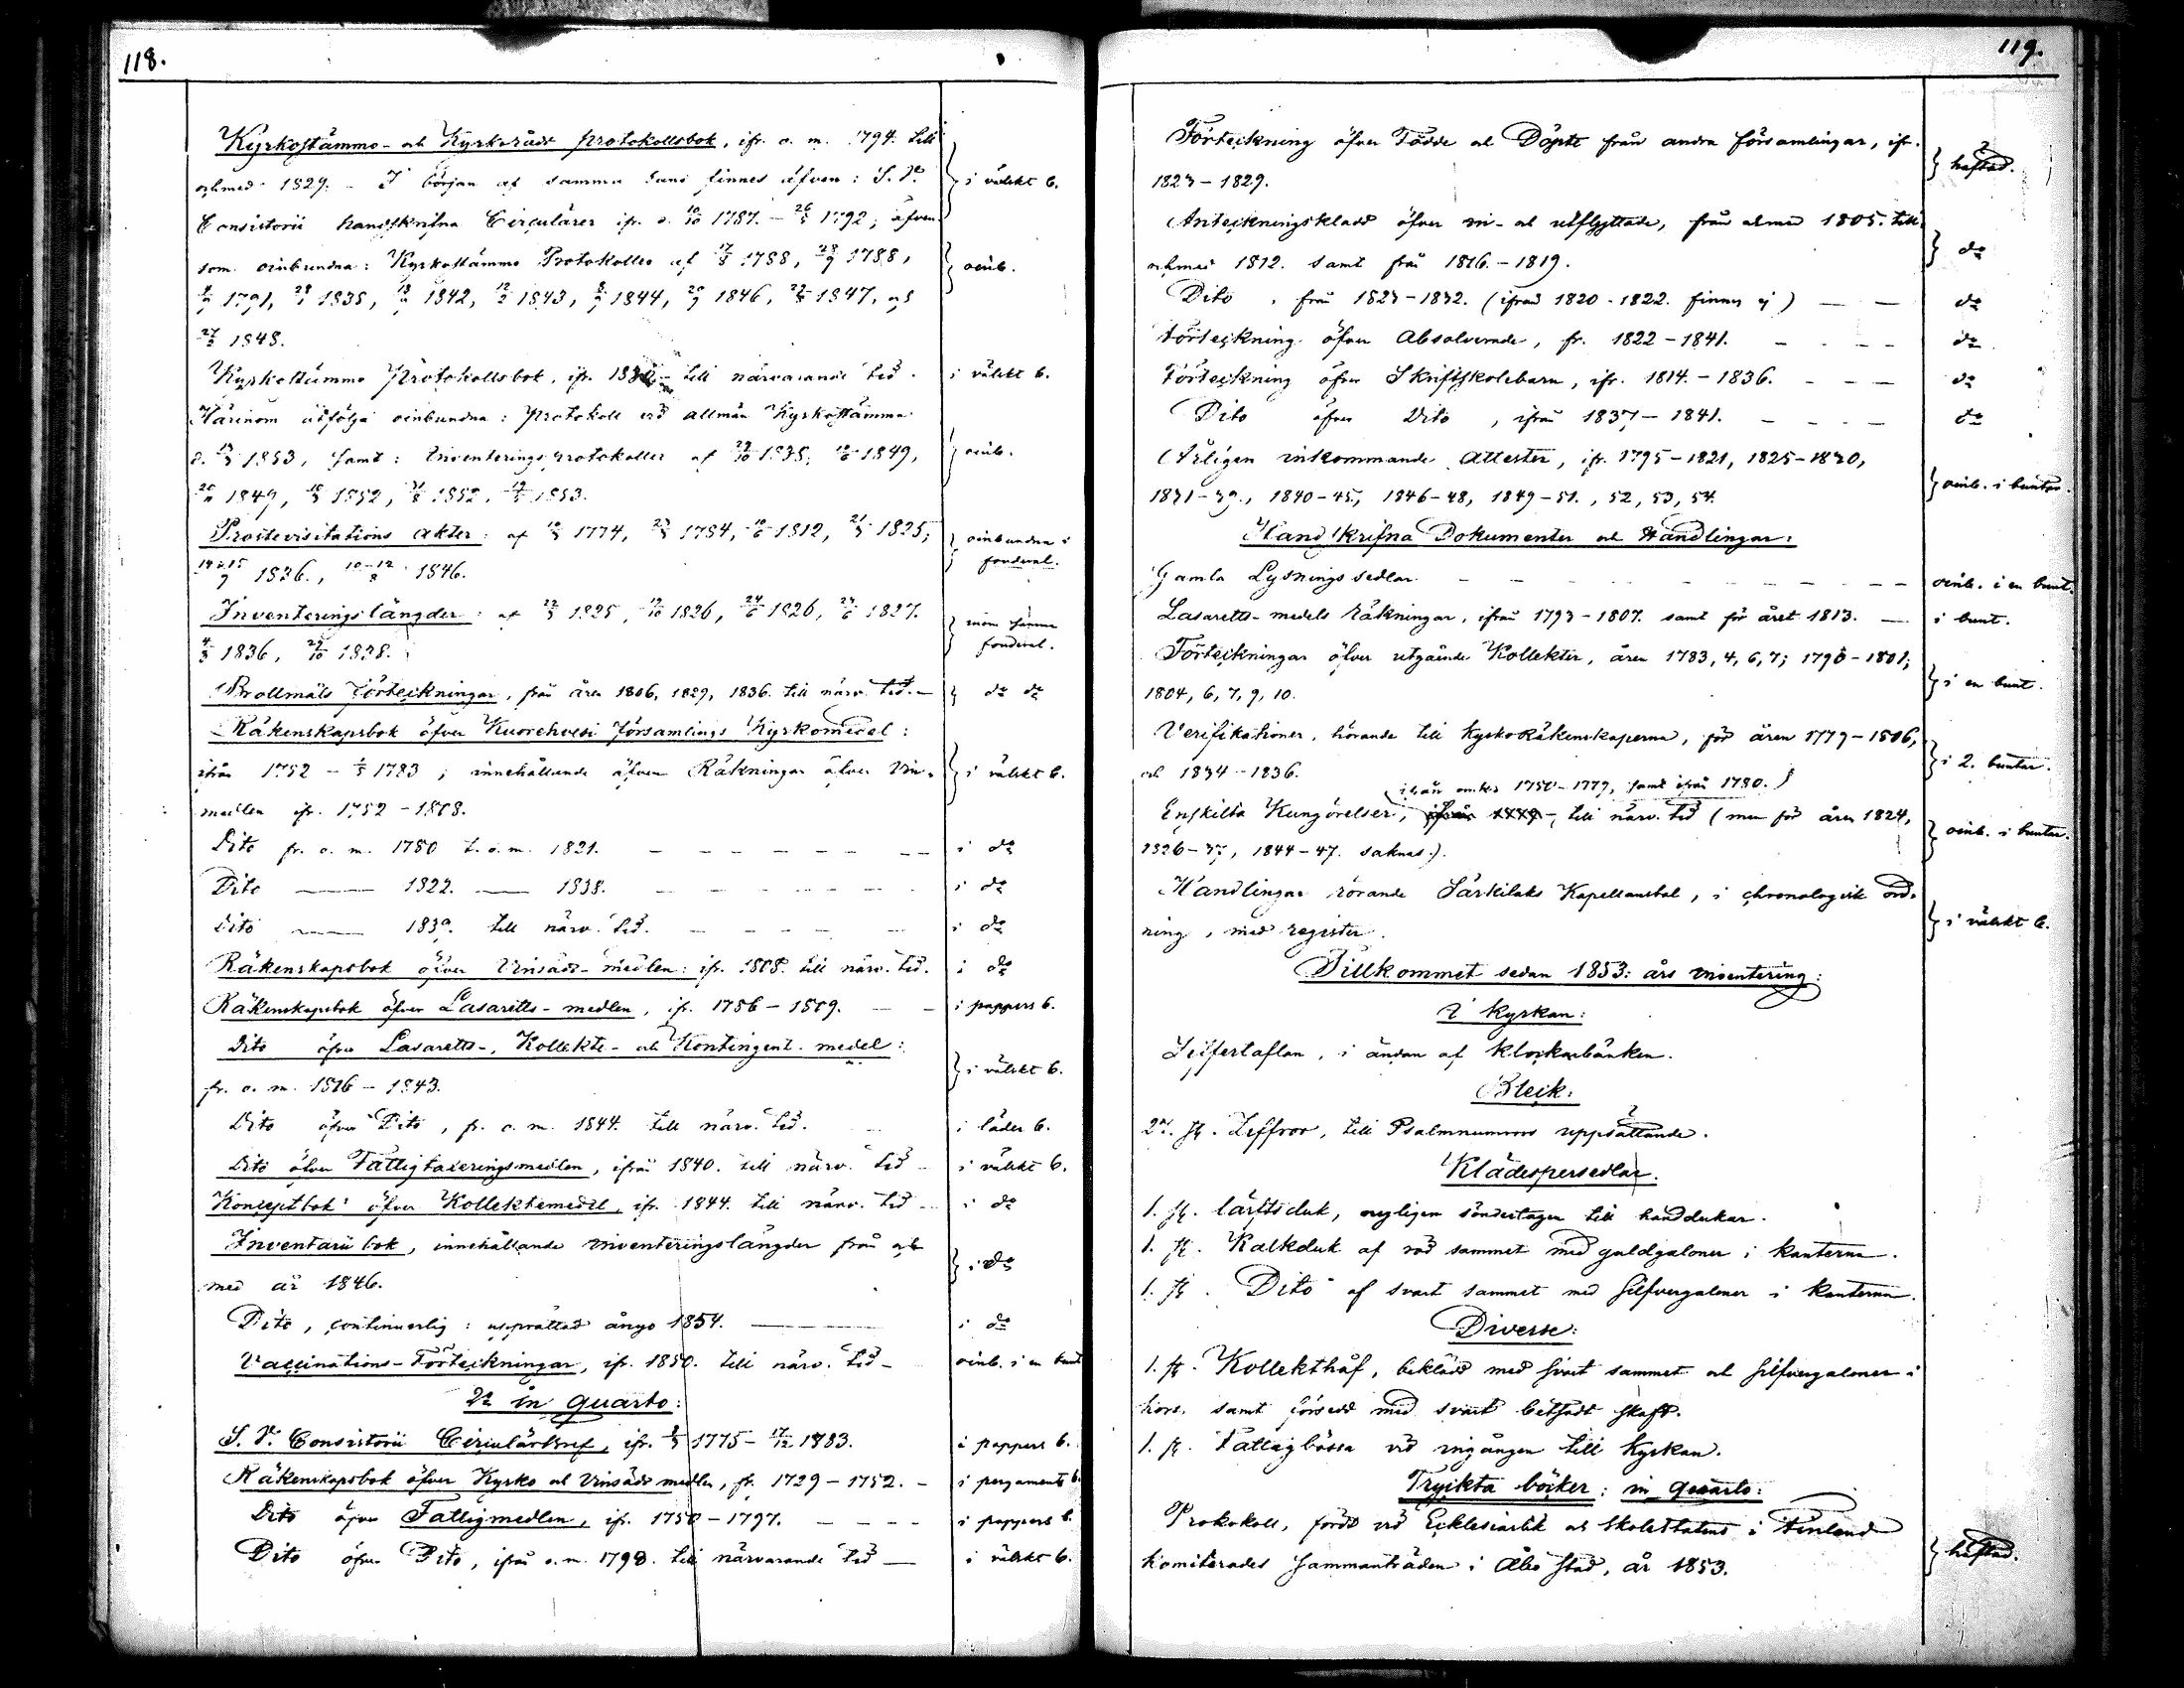 118.
Kyrkostämmo- och Kyrkoråds protokollsbok, ifr. o. m. 1794. till
ochmed 1829. - I början af samma band finnes äfven: S. V.
Consistorii handskrifna Circulärer ifr. d. 10/10 1787. - 26/5 1792; äfven-
i välskt b.
som oinbundna: Kyrkostämmo Protokoller af 1788, 1788,
1791, 1838, 1842, 1843, 1844, 1846, 1847, och
oinb.
1848.
Kyrkostämmo Protokollsbok, ifr. till närvarande tid.
i välskt b.
Härinom åtfölja oinbundna: Protokoll vid allmän Kyrkostämma
d. 1853, samt: Inventeringsprotokoller af 1838, 1849,
oinb.
1849, 1852, 1852, 1853.
Prostevisitations Akter: af 1774, 1784, 1812, 1825;
14 & 15/7 1836., 10-12/8 1846.
oinbundna i fouderal.
Inventeringslängder: af 1825, 1826, 1826, 1827.
4/3 1836, 1838.
inom samma fouderal.
Brollmåls Förteckningar, från åren 1806, 1829, 1836. till närv. tid. -
do do
Räkenskapsbok öfver Kuorehvesi Församlings Kyrkomedel:
ifrån 1752 - 1783; innehållande äfven Räkningar öfver Vin-
medlen ifr. 1752 - 1808.
i välskt b.
Dito fr. o. m. 1780 t. o. m. 1821. - - - - - -
i do
Dito —— 1822. —— 1838. - - - - - -
i do
Dito —— 1839. till närv. tid. - - - - -
i do
Räkenskapsbok öfver Vinsäds-medlen: ifr. 1808. till närv. tid.
i do
Räkenskapsbok öfver Lasaretts-medlen, ifr. 1786 - 1809. - -
i pappers b.
Dito öfver Lasaretts-, Kollekt- och Kontingent-medel:
fr. o. m. 1816 - 1843.
i välskt b.
Dito öfver Dito, fr. o. m. 1844. till närv. tid.
i läder b.
Dito öfver Fattigtaxeringsmedlen, ifrån 1840. till närv. tid -
i välskt b.
Konceptbok öfver Kollektemedel, ifr. 1844. till närv. tid -
i do
Inventarii bok, innehållande inventeringslängder från och
med år 1846.
i do
Dito, continuerlig: upprättad ånyo 1854. ———
i do
Vaccinations-Förteckningar, ifr. 1850. till närv. tid -
oinb. i en bunt
2o in quarto:
S. V. Consistorii Circulärbref, ifr. 1775 - 17/12 1783.
i pappers b.
Räkenskapsbok öfver Kyrko och Vinsäds medlen, fr. 1729 - 1752. -
i pergaments b.
Dito öfver Fattigmedlen, ifr. 1750 - 1797. - - - -
i pappers b.
Dito öfver Dito, ifrån o. m. 1798. till närvarande tid —
i välskt b.
119.
Förteckning öfver Födde och Döpte från andra församlingar, ifr.
1823 - 1829.
häftad.
Anteckningskladd öfver in- och utflyttade, från och med 1805. till
ochmed 1812. samt från 1816. - 1819.
do
Dito, från 1823 - 1832. (ifrån 1820 - 1822. finnes ej) — —
do
Förteckning öfver Absolverade, fr. 1822 - 1841. - - - -
do
Förteckning öfver Skriftskolebarn, ifr. 1814. - 1836. - - -
do
Dito öfver Dito, ifrån 1837 - 1841. - - - -
do
Årligen inkommande Attester, ifr. 1795 - 1821, 1825 - 1830,
1831 - 39., 1840 - 45, 1846 - 48, 1849 - 51., 52, 53, 54.
oinb. i buntar.
Handskrifna Dokumenter och Handlingar:
Gamla Lysnings sedlar - - - - - - - -
oinb. i en bunt.
Lasaretts-medels räkningar, ifrån 1793 - 1807. samt för året 1813. —
i bunt.
Förteckningar öfver utgående Kollekter, åren 1783, 4, 6, 7; 1798 - 1801;
1804, 6, 7, 9, 10.
i en bunt.
Verifikationer, hörande till KyrkoRäkenskaperna, för åren 1779 - 1806,
och 1834 - 1836.
i 2. buntar.
ifrån omkr. 1750 - 1779, samt ifrån 1780.)
Enskilta Kungörelser, till närv. tid (men för åren 1824,
1826 - 37, 1844 - 47. saknas.).
oinb. i buntar.
Handlingar rörande Särkilaks Kapellansbol, i chronologisk ord-
ning, med register.
i välskt b.
Tillkommet sedan 1853: års inventering:
i Kyrkan:
Ziffertaflan, i ändan af klockarbänken.
Bleck:
st. Ziffror, till Psalmnumrors uppsättande.
Klädespersedlar.
1. st. lärftsduk, nyligen söndertagen till handdukar.
1. st. Kalkduk af röd sammet med guldgaloner i kanterna.
1. st. Dito af svart sammet med silfvergaloner i kanterna.
Diverse:
1. st. Kollekthåf, beklädd med svart sammet och silfvergaloner i
kors, samt försedd med svart betsadt skaft.
1. st. Fattigbössa vid ingången till Kyrkan.
Tryckta böcker: in quarto:
Protokoll, fördt vid Ecklesiastik och Skolestatens i Finland
Komiterades sammanträden i Åbo stad, år 1853.
häftad.